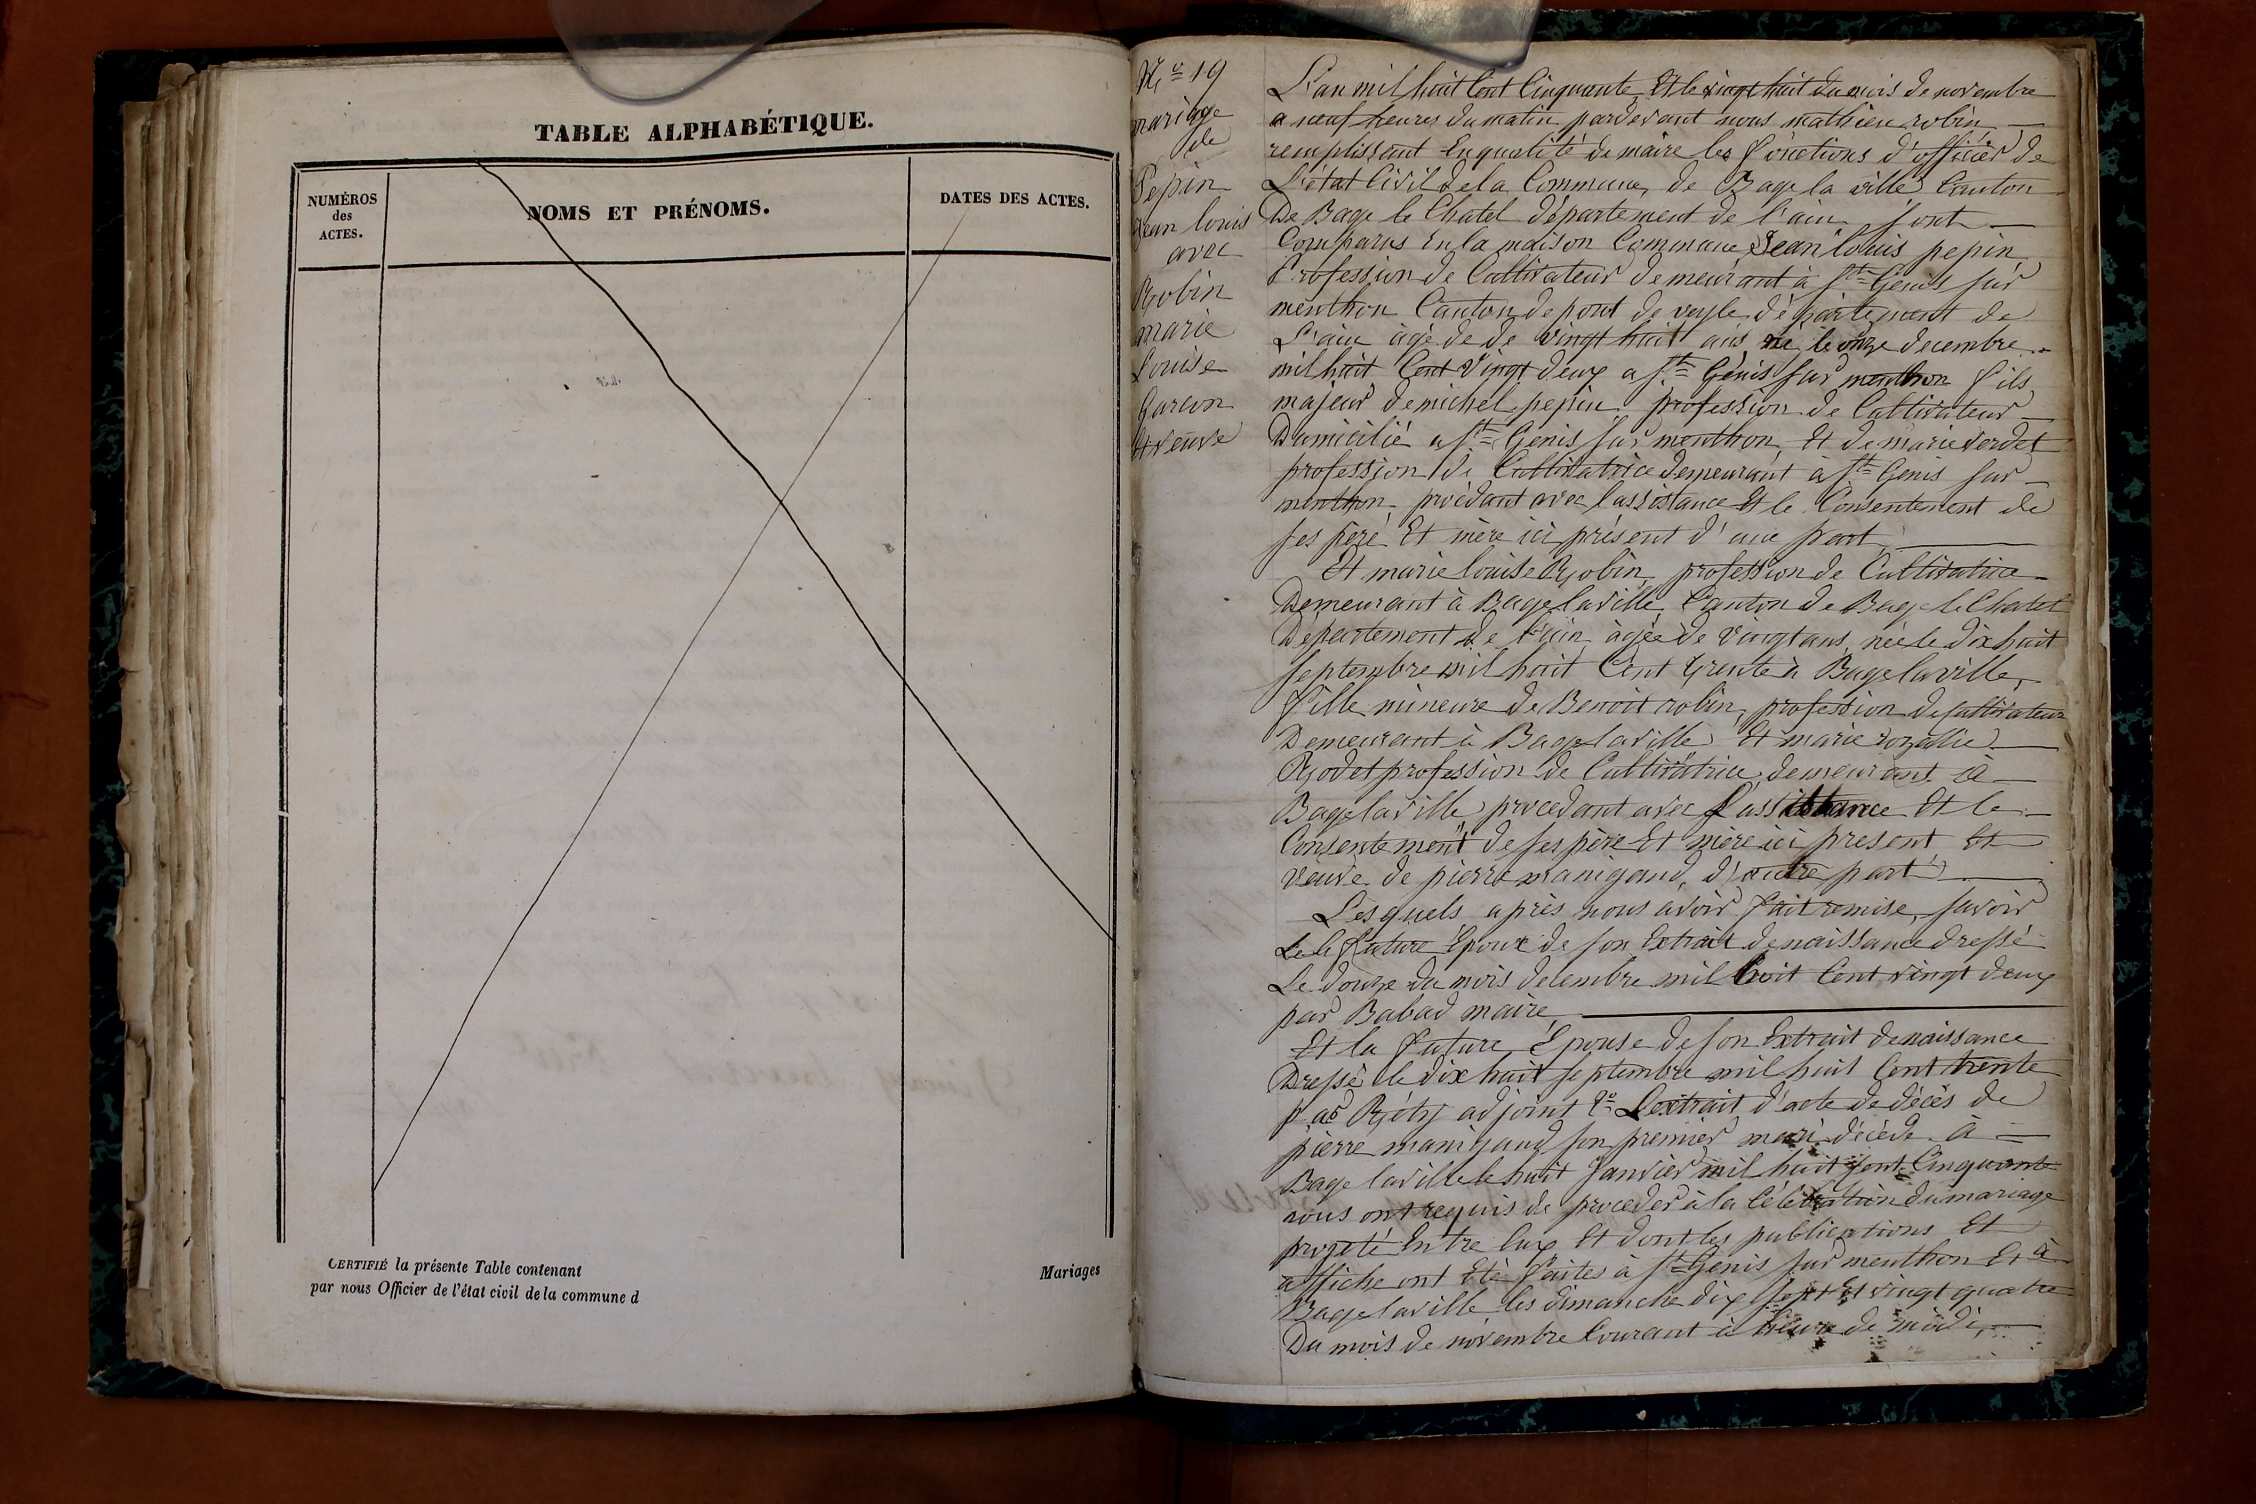 TABLE ALPHABÉTIQUE.
NUMÉROS
des
ACTES.
NOMS ET PRÉNOMS.
DATES DES ACTES.
CERTIFIÉ la présente Table contenant
par nous Officier de l'état civil de la commune d
Mariages
No 19
mariage
de
Pepin
Jean louis
avec
Robin
marie
Louise
Garcon
et veuve
L'an mil huit Cent Cinquante, Et le vingt huit du mois de novembre
a neuf heures du matin pardevant nous mathieu robin
remplissant En qualité de maire les fonctions d'officier de
L'état Civil de la Commune, de Bage la ville Canton
De Bage le Chatel département de l'ain sont
Comparus En la maison Commune Jean louis pepin
Profession de Cultivateur demeurant à St Genis sur
menthon Canton de pont de veyle département de
L'ain àgé de de vingt huit ans né le onze decembre
mil huit Cent vingt deux a St Génis sur menthon fils
majeur de michel pepin profession de Cultivateur
Domicilié a St Genis sur menthon, Et de marie verdet
profession de Cultivatrice demeurant à St Genis sur
menthon procédant avec l'assistance Et le Consentement de
ses père Et mère ici présent d'une part
Et marie louise Robin profession de Cultivatrice
Demeurant à Bage la ville Canton de Bage le Chatel
Département de l'ain àgée de vingt ans, née le dix huit
septembre mil huit Cent trente à Bage la ville,
fille mineure de Benoit robin, profession de Cultivateur
Demeurant à Bage la ville Et marie rozallie
Rodet profession de Cultivatrice demeurant à
Bage la ville procedant avec l'assistance Et le
Consentement de ses père Et mère ici present Et
veuve de pierre manigand, d'autre part
Lesquels après nous avoir fait remise, savoir
Le le future Epoux de son Extrait de naissance dressé
Le douze du mois decembre mil huit Cent vingt deux
par Babad maire,
Et la future Epouse de son Extrait de naissance
Dressé le dix huit septembre mil huit Cent trente
par Réty adjoint 2o L'extrait d'acte de décès de
pierre manigand son premier mari décède à
Bage la ville le huit Janvier mil huit Cent Cinquante
nous ont requis de proceder à la Célébration du mariage
projeté Entre Eux Et dont les publications Et
affiche ont Eté faites à St Genis sur menthon Et à
Bage la ville les dimanche dix sept Et vingt quatre
Du mois de novembre Courant à heure de midi,